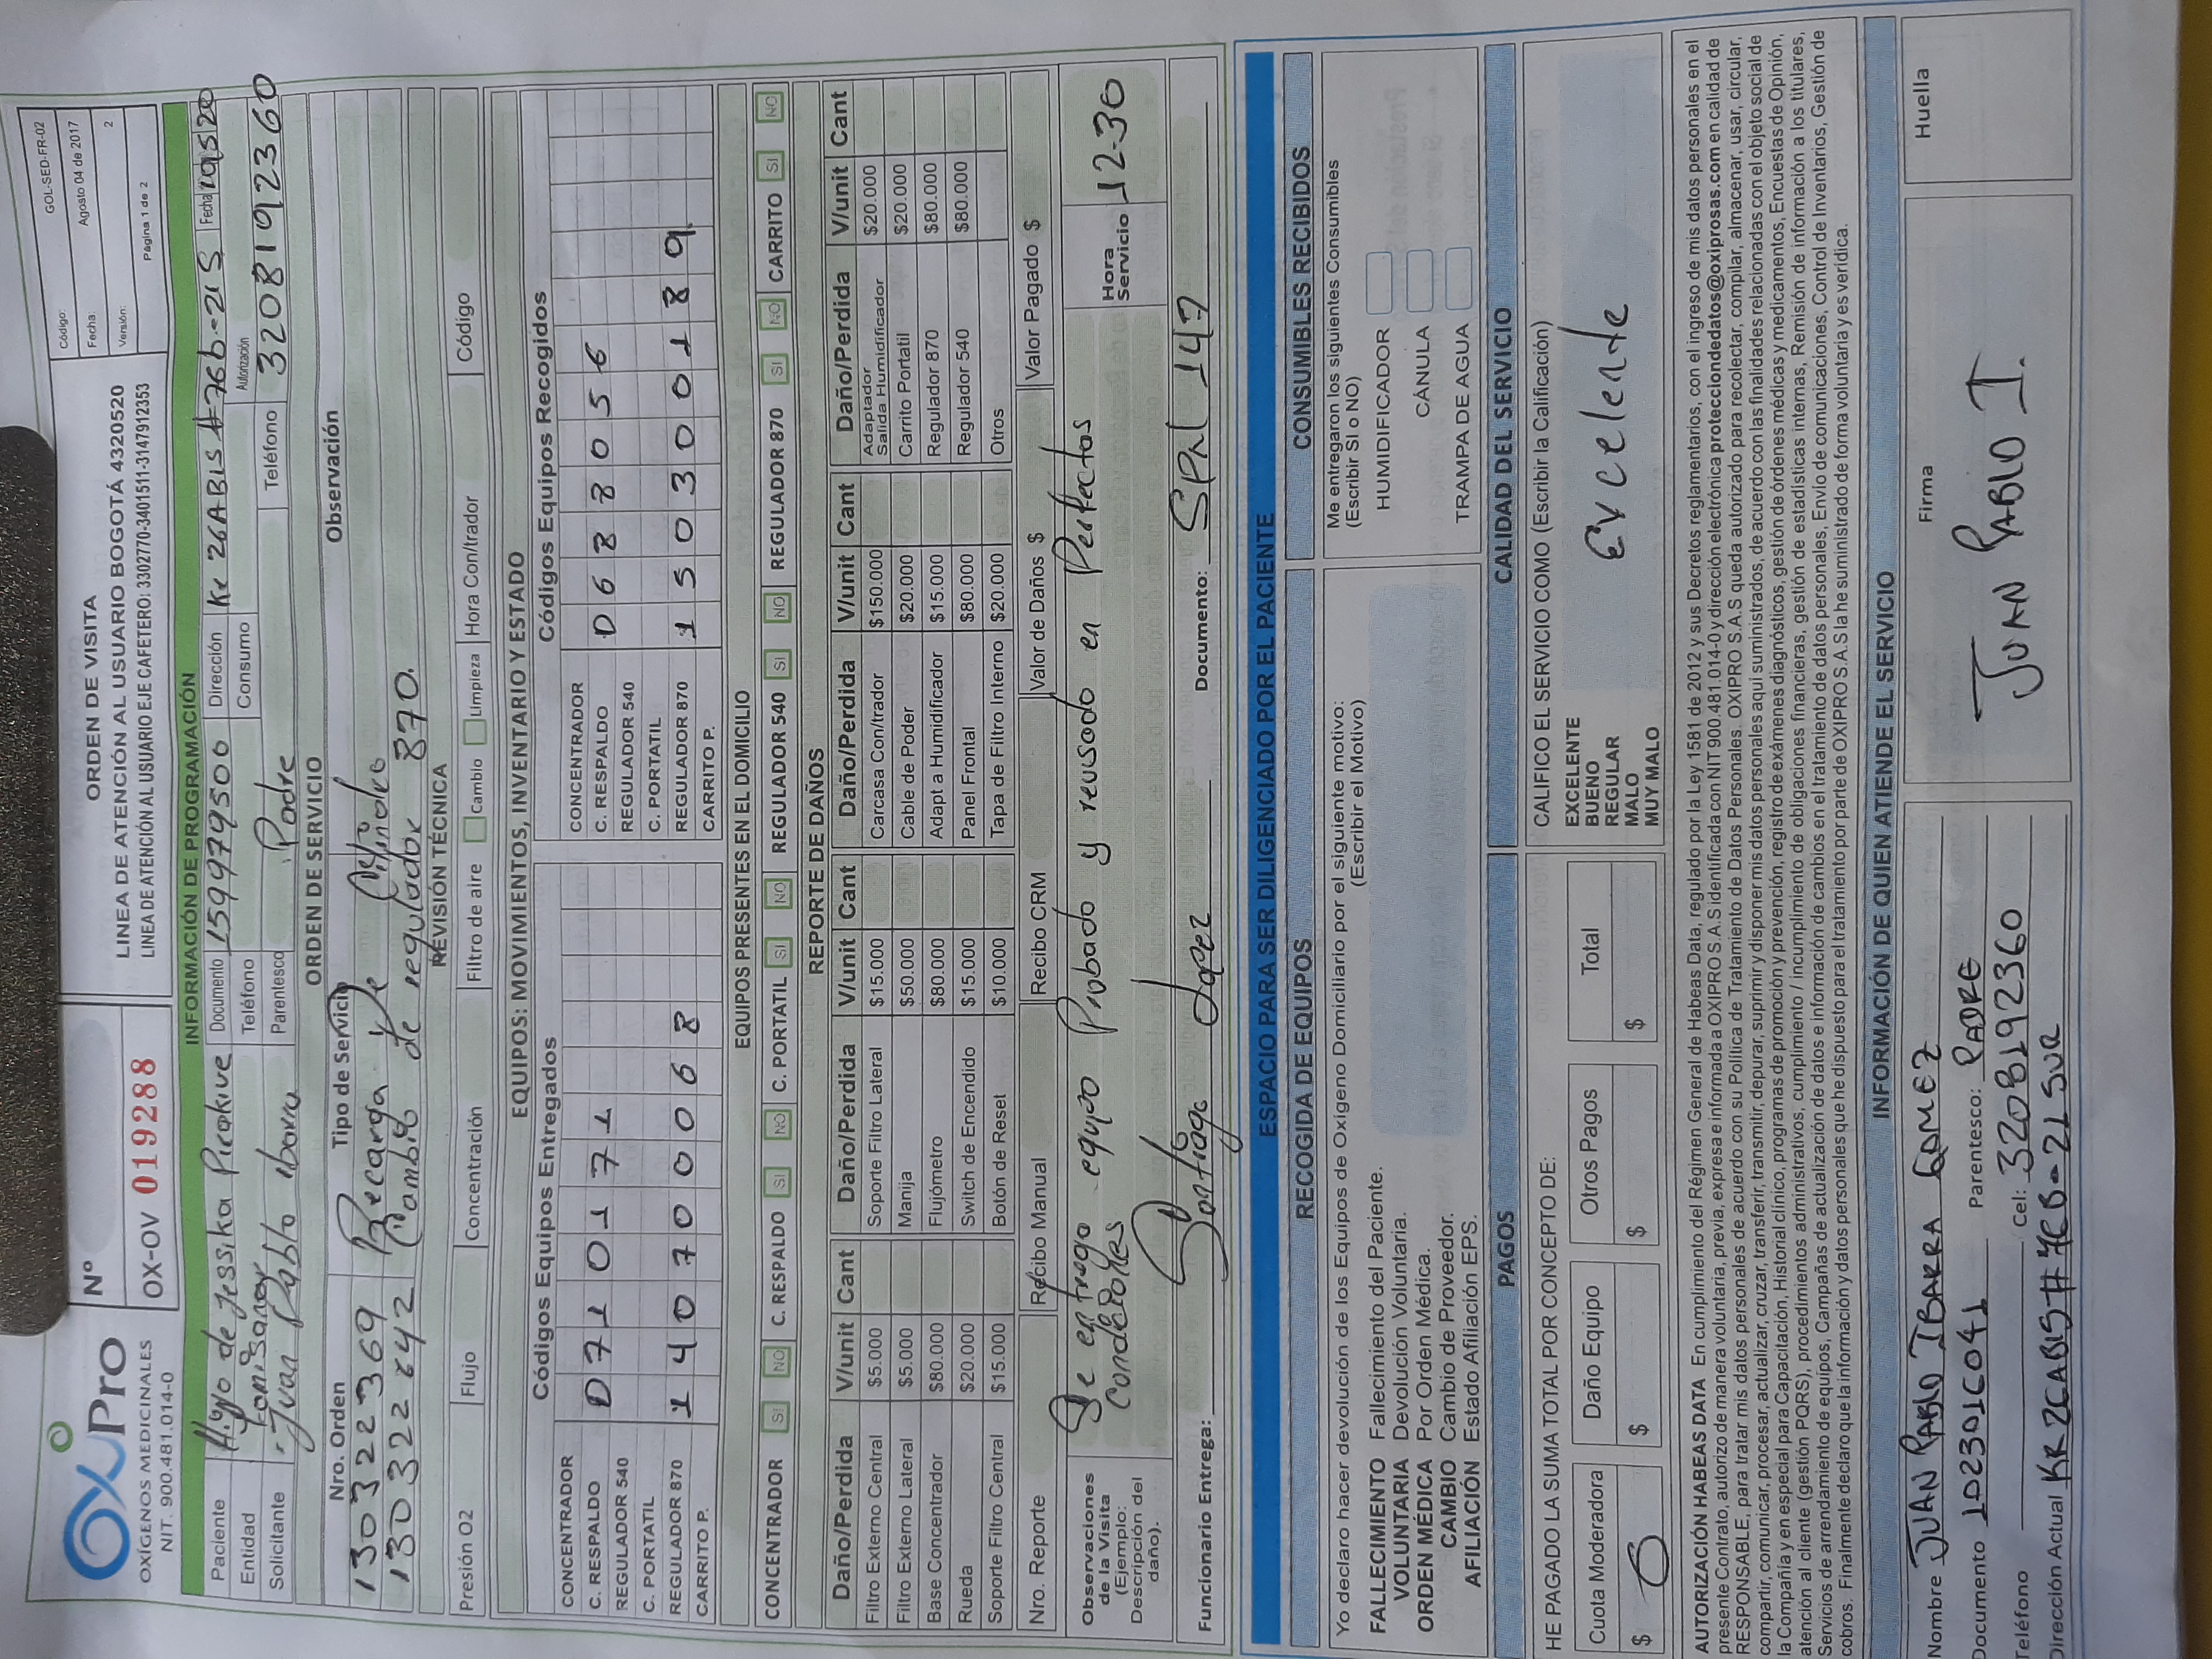 OxiPro
OXÍGENOS MEDICINALES
NIT. 900.481.014-0
Nº
OX-OV 019288
ORDEN DE VISITA
LINEA DE ATENCIÓN AL USUARIO BOGOTÁ 4320520
LINEA DE ATENCIÓN AL USUARIO EJE CAFETERO: 3302770-3401511-3147912353
Código: GOL-SED-FR-02
Fecha: Agosto 04 de 2017
Versión: 2
Página 1 de 2
INFORMACIÓN DE PROGRAMACIÓN
Paciente Hijo de Jessika Pirakive Documento 1599779500 Dirección Kr 26ABIS #76b-21S Fecha 190520
Entidad Famisanar Teléfono Consumo Autorización
Solicitante Juan Pablo ibarra Parentesco Padre Teléfono 3208192360
ORDEN DE SERVICIO
Nro. Orden Tipo de Servicio Observación
130322369 Recarga de Cilindro
130322642 Cambio de regulador 870.
REVISIÓN TÉCNICA
Presión O2 Flujo Concentración Filtro de aire Cambio Limpieza Hora Con/trador Código
EQUIPOS: MOVIMIENTOS, INVENTARIO Y ESTADO
Códigos Equipos Entregados Códigos Equipos Recogidos
CONCENTRADOR CONCENTRADOR
C. RESPALDO D710171 C. RESPALDO D688056
REGULADOR 540 REGULADOR 540
C. PORTATIL C. PORTATIL
REGULADOR 870 14070068 REGULADOR 870 150300189
CARRITO P. CARRITO P.
EQUIPOS PRESENTES EN EL DOMICILIO
CONCENTRADOR SI NO C. RESPALDO SI NO C. PORTATIL SI NO REGULADOR 540 SI NO REGULADOR 870 SI NO CARRITO SI NO
REPORTE DE DAÑOS
Daño/Perdida V/unit Cant Daño/Perdida V/unit Cant Daño/Perdida V/unit Cant Daño/Perdida V/unit Cant
Filtro Externo Central $5.000 Soporte Filtro Lateral $15.000 Carcasa Con/trador $150.000 Adaptador Salida Humidificador $20.000
Filtro Externo Lateral $5.000 Manija $50.000 Cable de Poder $20.000 Carrito Portatil $20.000
Base Concentrador $80.000 Flujómetro $80.000 Adapt a Humidificador $15.000 Regulador 870 $80.000
Rueda $20.000 Switch de Encendido $15.000 Panel Frontal $80.000 Regulador 540 $80.000
Soporte Filtro Central $15.000 Botón de Reset $10.000 Tapa de Filtro Interno $20.000 Otros
Nro. Reporte Recibo Manual Recibo CRM Valor de Daños $ Valor Pagado $
Observaciones de la Visita (Ejemplo: Descripción del daño). Se entrega equipo Probado y reusado en Perfectas Hora Servicio 12-30
condeciones
Funcionario Entrega: Santiago Lopez Documento: SPNL 147
ESPACIO PARA SER DILIGENCIADO POR EL PACIENTE
RECOGIDA DE EQUIPOS
Yo declaro hacer devolución de los Equipos de Oxígeno Domiciliario por el siguiente motivo:
(Escribir el Motivo)
FALLECIMIENTO Fallecimiento del Paciente.
VOLUNTARIA Devolución Voluntaria.
ORDEN MÉDICA Por Orden Médica.
CAMBIO Cambio de Proveedor.
AFILIACIÓN Estado Afiliación EPS.
CONSUMIBLES RECIBIDOS
Me entregaron los siguientes Consumibles
(Escribir SI o NO)
HUMIDIFICADOR
CÁNULA
TRAMPA DE AGUA
PAGOS
HE PAGADO LA SUMA TOTAL POR CONCEPTO DE:
Cuota Moderadora Daño Equipo Otros Pagos Total
$ 0 $ $ $
CALIDAD DEL SERVICIO
CALIFICO EL SERVICIO COMO (Escribir la Calificación)
EXCELENTE
BUENO
REGULAR
MALO
MUY MALO
Excelente
AUTORIZACIÓN HABEAS DATA En cumplimiento del Régimen General de Habeas Data, regulado por la Ley 1581 de 2012 y sus Decretos reglamentarios, con el ingreso de mis datos personales en el
presente Contrato, autorizo de manera voluntaria, previa, expresa e informada a OXIPRO S.A.S identificada con NIT 900.481.014-0 y dirección electrónica protecciondedatos@oxiprosas.com en calidad de
RESPONSABLE, para tratar mis datos personales de acuerdo con su Política de Tratamiento de Datos Personales. OXIPRO S.A.S queda autorizado para recolectar, compilar, almacenar, usar, circular,
compartir, comunicar, procesar, actualizar, cruzar, transferir, transmitir, depurar, suprimir y disponer mis datos personales aquí suministrados, de acuerdo con las finalidades relacionadas con el objeto social de
la Compañía y en especial para Capacitación, Historial clínico, programas de promoción y prevención, registro de exámenes diagnósticos, gestión de órdenes médicas y medicamentos, Encuestas de Opinión,
atención al cliente (gestión PQRS), procedimientos administrativos, cumplimiento / incumplimiento de obligaciones financieras, gestión de estadísticas internas, Remisión de información a los titulares,
Servicios de arrendamiento de equipos, Campañas de actualización de datos e información de cambios en el tratamiento de datos personales, Envío de comunicaciones, Control de Inventarios, Gestión de
cobros. Finalmente declaro que la información y datos personales que he dispuesto para el tratamiento por parte de OXIPRO S.A.S la he suministrado de forma voluntaria y es verídica.
INFORMACIÓN DE QUIEN ATIENDE EL SERVICIO
Nombre JUAN PABLO IBARRA GOMEZ
Documento 102301C041 Parentesco: PADRE
Teléfono Cel: 3208192360
Dirección Actual KR26ABIS # 76B-21 SUR
Firma
JUAN PABLO I.
Huella